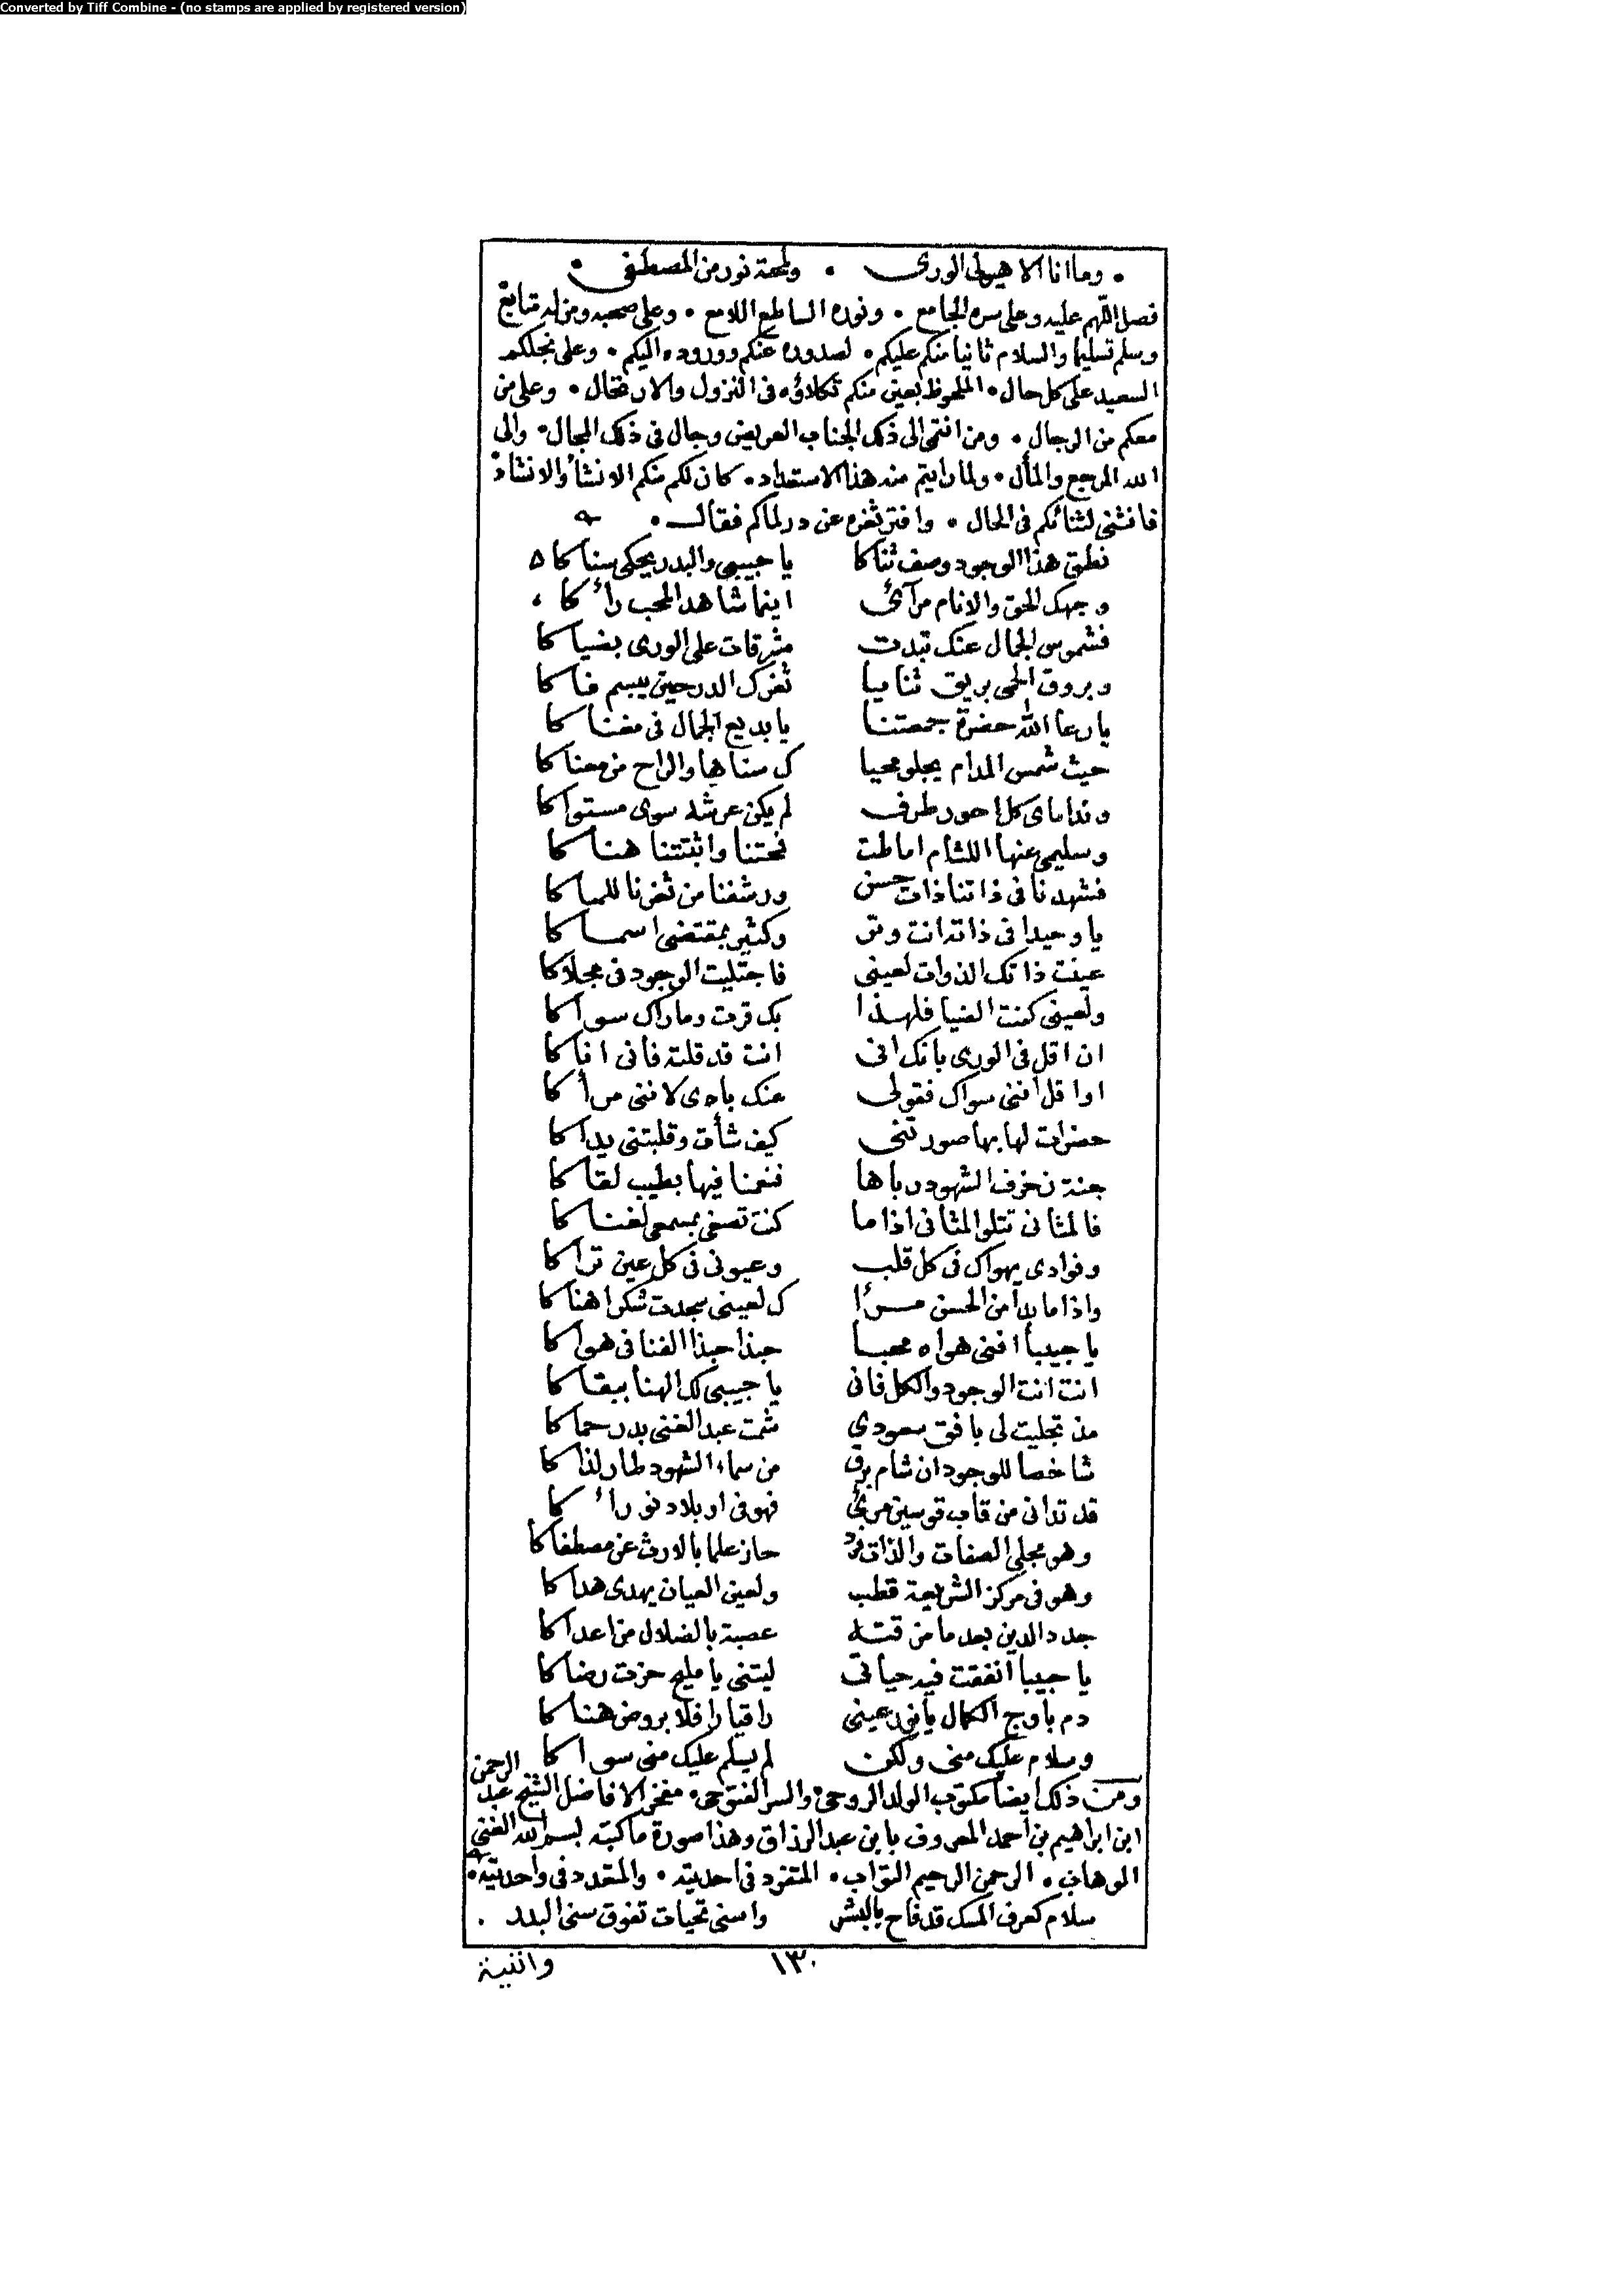 Converted by Tiff Combine - (no stamps are applied by registered version)
• وما انا الا هيولى الورى • ولمحة نور من المصطفى •
فصل اللهم عليه وعلى سره الجامع • ونوره الساطع اللامع • وعلى صحبه ومن له متابع
وسلم تسليما والسلام ثانيا منكم عليكم • لصدوره عنكم ووروده اليكم • وعلى نجلكم
السعيد على كل حال • الملحوظ بعين منكم تكلاؤه فى النزول والارتحال • وعلى من
معكم من الرجال • ومن انتمى الى ذلك الجناب العريض وجال فى ذلك المجال • والى
الله المرجع والمأل • ولما رايتم منه هذا الاستعداد • كان لكم منكم الانشأ والانشاد
فانثنى لثنائكم فى الحال • وافتر ثغره عن در لماكم فقال •
نطق هذا الوجود وصف ثناكا يا حبيبى والبدر يحكى سناكا
وجهك الحق والانام مرآئى اينما شاهد المحب رأكا
فشموس الجمال عنك تبدت مشرقات على الورى بضياكا
وبروق الحمى بريق ثنايا ثغرك الدر حين يبسم فاكا
يا رعا الله حضرة جمعتنا يا بديع الجمال فى مغناكا
حيث شمس المدام يجلو محيا ك سناها والراح من معناكا
وندامى كل احور طرف لم يكن عرشه سوى مستواكا
وسليمى عنها اللثام اماطت فمحتنا واثبتتنا هناكا
فشهدنا فى ذاتنا ذات حسن ورشفنا من ثغرنا للماكا
يا وحيدا فى ذاته انت وتر وكثير بمقتضى اسماكا
عينت ذاتك الذوات لعينى فاجتليت الوجود فى مجلاكا
ولعينى كنت الضيا فلهذا بك قرت وما رأك سواكا
ان اقل فى الورى بانك انى انت قد قلته فانى اناكا
اوا قل اننى سواك فقولى عنك بادى لاننى مرأكا
حضرات لها بها صورتنى كيف شأت وقلبتنى يداكا
جنة زخرف الشهود رباها فنعمنا فيها بطيب لقاكا
فالمثانى تتلو المثانى اذا ما كنت تصغى بمسمعى لغناكا
وفوادى يهواك فى كل قلب وعيونى فى كل عين تراكا
واذا ما بدأ من الحسن مرأ ك لعينى سجدت شكرا هناكا
يا حبيبا افنى هواه محبا حبذا حبذا الفنا فى هواكا
انت انت الوجود والكل فانى يا حبيبى لك الهنأ ببقاكا
مذ تجليت لى بافق سعودي شمت عبد الغنى بدر حماكا
شاخصا للوجود ان شام برق من سماء الشهود طار لذاكا
قد تدانى من قاب قوسين قربى فهو فى او بلاد نو رأكا
وهو مجلى الصفات والذات فرد حاز علما بالارث عن مصطفاكا
وهو فى مركز الشريعة قطب ولعين العيان يهدى هداكا
جدد الدين بعد ما مزقته عصبة بالضلال من اعداكا
يا حبيبا انفقت فيه حياتى ليتنى يا مليح حزت رضاكا
دم باوج الكمال يا نور عينى راقيا رافلا بروض هناكا
وسلام عليك منى ولكن لم يسلم عليك منى سواكا
ومن ذلك ايضا مكتوب الولد الروحى • والسر الفتوحى • مفخر الافاضل الشيخ عبد الرحمن
ابن ابراهيم بن احمد المعروف بابن عبد الرزاق وهذا صورة ما كتبه بسم الله الغنى
الوهاب • الرحمن الرحيم التواب • المتفرد فى احديته • والمتعدد فى واحديته •
سلام كعرف المسك قد فاح بالبشر واسنى تحيات تفوق سنى البدر •
١٣٠
واثنية